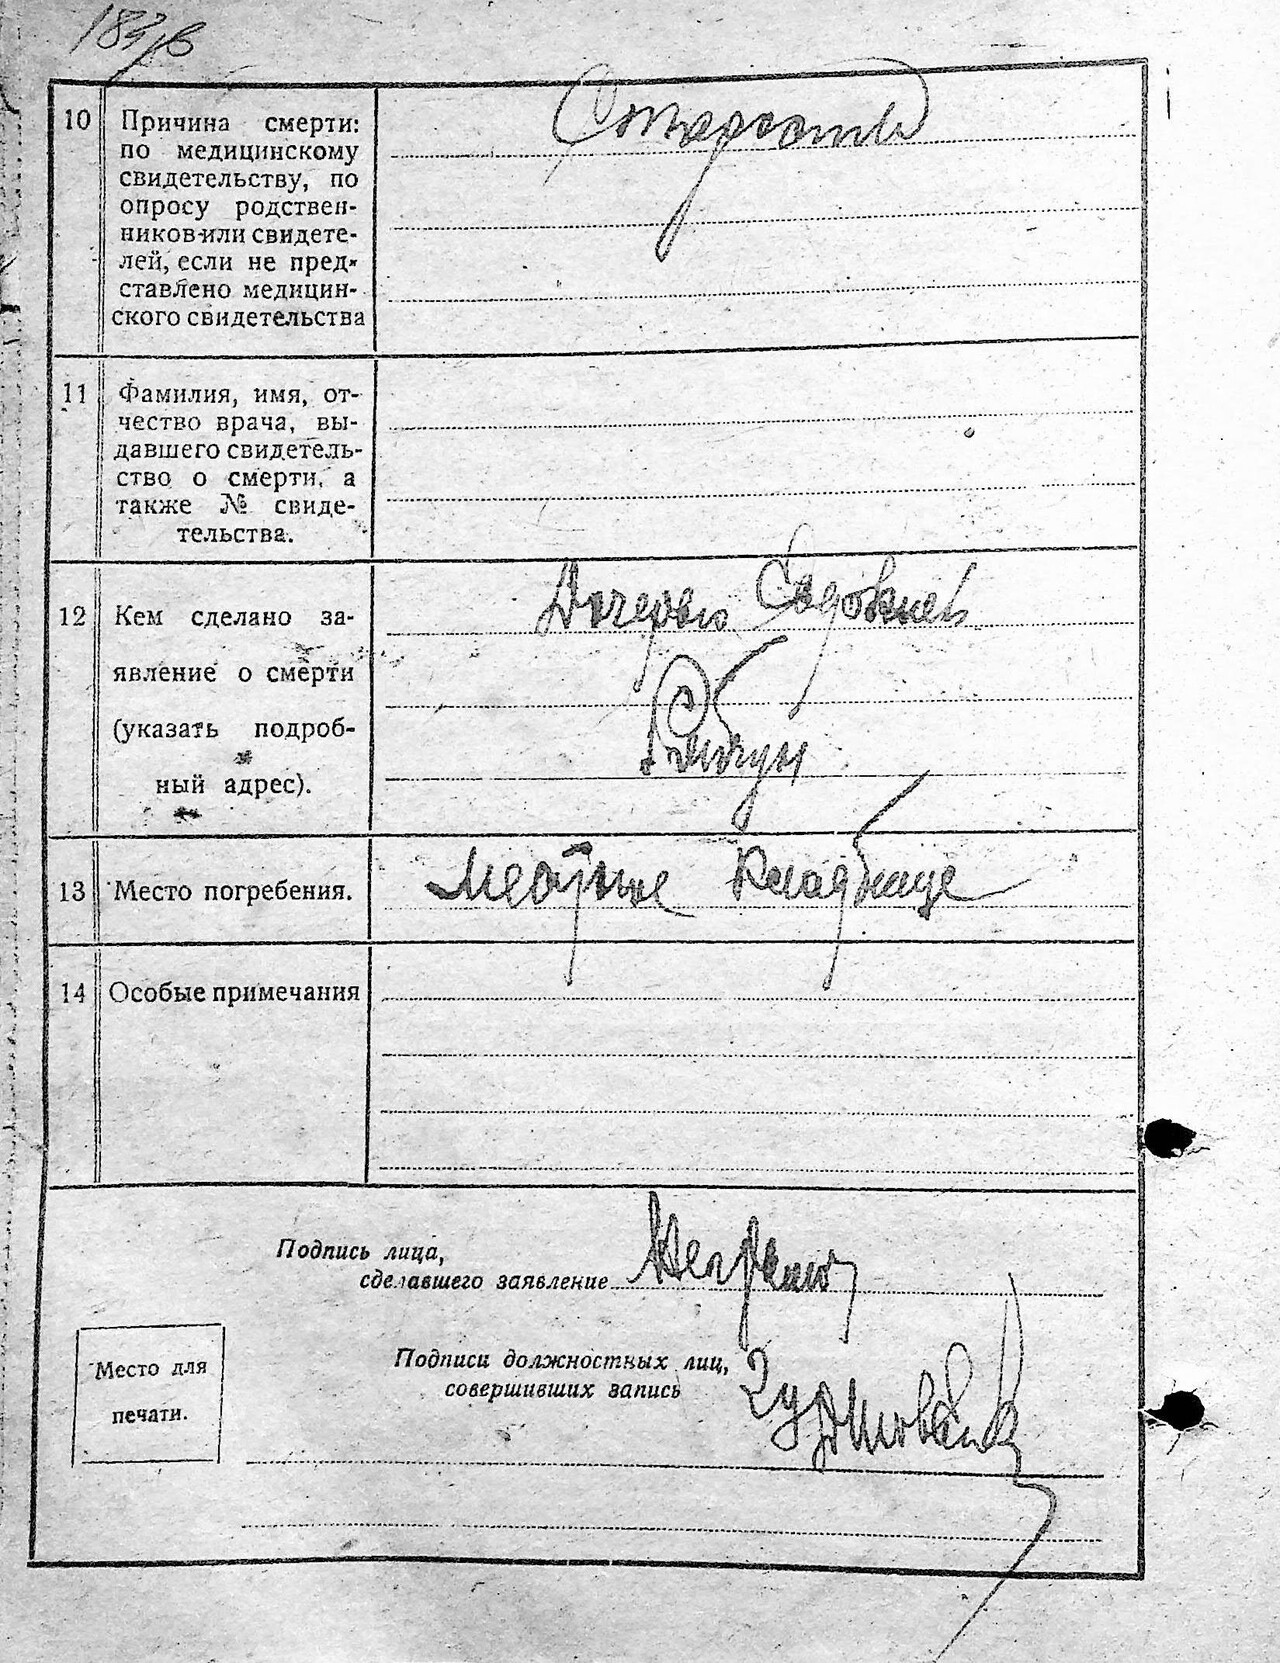 10 Причина смерти:
по медицинскому
свидетельству, по
опросу родствен-
ников или свидете-
лей, если не пред-
ставлено медицин-
ского свидетельства
Старость
11 Фамилия, имя, от-
чество врача, вы-
давшего свидетель-
ство о смерти, а
также № свиде-
тельства.
12 Кем сделано за-
явление о смерти
(указать подроб-
ный адрес).
Дочерью Садовией
13 Место погребения.
Местное кладбище
14 Особые примечания
Подпись лица,
сделавшего заявление
Подписи должностных лиц,
совершивших запись
Место для
печати.